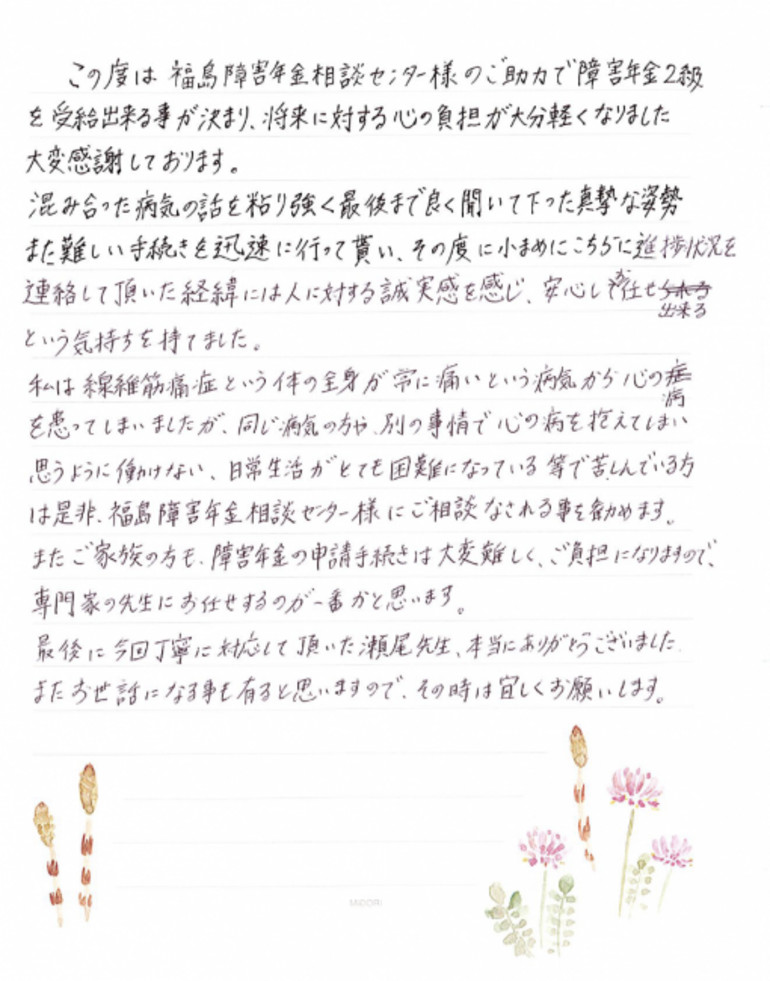 この度は 福島障害年金相談センター様のご助力で障害年金2級
を受給出来る事が決まり、将来に対する心の負担が大分軽くなりました
大変感謝しております。
混み合った病気の話を粘り強く最後まで良く聞いて下った真摯な姿勢
また難しい手続きを迅速に行って貰い、その度に小まめにこちらに進捗状況を
連絡して頂いた経緯には人に対する誠実感を感じ、安心してお任せ出来る
という気持ちを持てました。
私は線維筋痛症という体の全身が常に痛いという病気から心の病
を患ってしまいましたが、同じ病気の方や、別の事情で心の病を抱えてしまい
思うように働けない、日常生活がとても困難になっている等で苦しんでいる方
は是非、福島障害年金相談センター様にご相談なされる事を勧めます。
またご家族の方も、障害年金の申請手続きは大変難しく、ご負担になりますので、
専門家の先生にお任せするのが一番かと思います。
最後に今回丁寧に対応して頂いた瀬尾先生、本当にありがとうございました
またお世話になる事も有ると思いますので、その時は宜しくお願いします。
MIDORI